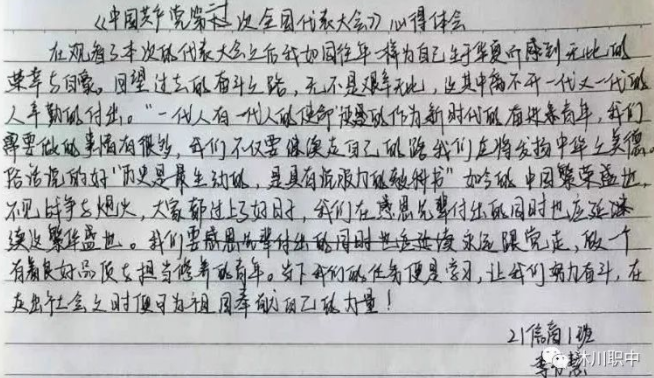 《中国共产党第二十次全国代表大会》心得体会
在观看了本次的代表大会之后我如同往年一样为自己生于华夏而感到无比的
荣幸与自豪。回望过去的奋斗之路,无不是艰辛无比,这其中离不开一代又一代的
人辛勤的付出。"一代人有一代人的使命"作为新时代的有为青年,我们
需要做的事情有很多,我们不仅要继续走自己的路我们应将发扬中华之美德。
俗话说的好"历史是最生动的,是具有说服力的教科书"如今的中国繁荣盛世,
不见战争与烟火,大家都过上了好日子,我们在感恩先辈付出的同时也应延
续这繁华盛世。我们要感恩先辈付出的同时也应该永远跟党走,做一个
有着良好品质与担当修养的青年。当下我们的任务便是学习,让我们努力奋斗,在
走出社会之时便可为祖国奉献自己的力量!
21信商1班
李
沐川职中